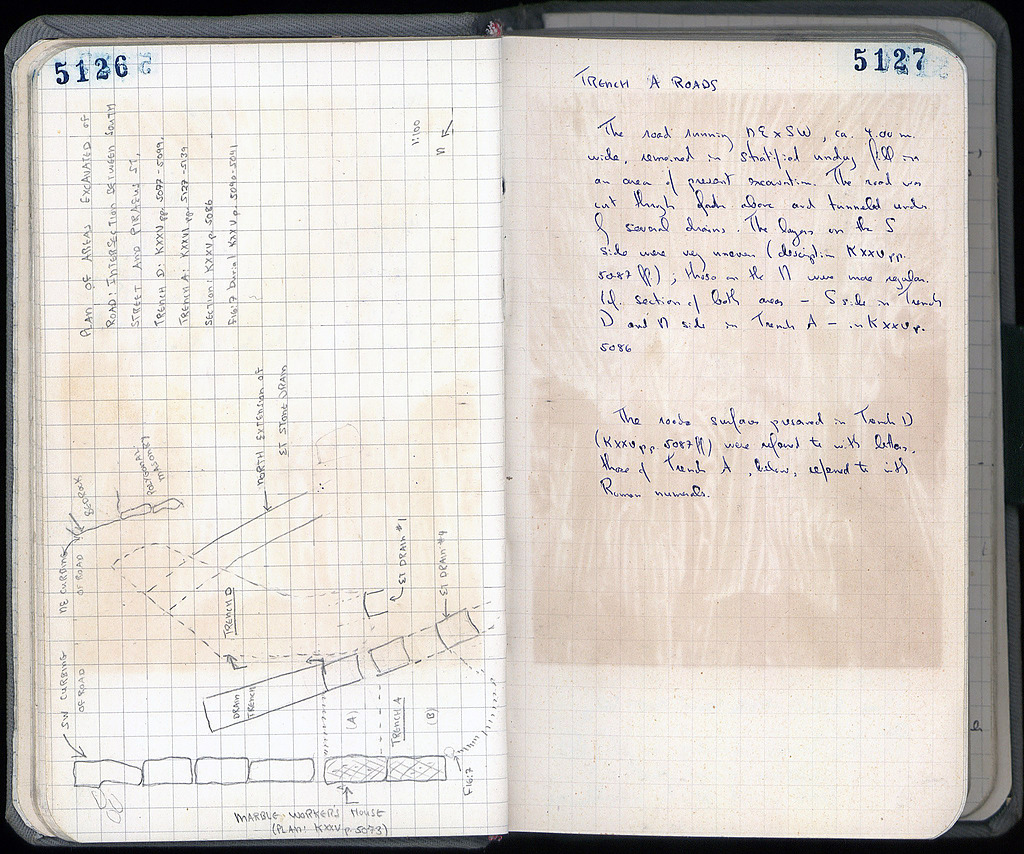 5126
PLAN OF AREAS EXCAVATED OF
ROAD: INTERSECTION BETWEEN SOUTH
STREET AND PIRAEUS ST,
TRENCH D: KXXV pp. 5077-5099,
TRENCH A: KXXVI pp. 5127-5139
SECTION: KXXV p. 5086
F16:7 burial KXXV p. 5090-5091
1:100
N
NORTH EXTENSION OF
ET STONE DRAIN
BEDROCK
POLYGONAL
MASONRY
NE CURBING
OF ROAD
SW CURBING
OF ROAD
TRENCH D
ET DRAIN #1
ET DRAIN #4
DRAIN
TRENCH
(A)
TRENCH A
(B)
F16:7
MARBLE WORKER'S HOUSE
(PLAN: KXXV p. 5073)
5127
TRENCH A ROADS
The road running NE x SW, ca. 4.00 m.
wide, remained in stratified undug fill in
an area of present excavation. The road was
cut through from above and tunneled under
by several drains. The layers on the S
side were very uneven (description KXXV pp.
5087 ff); those on the N were more regular.
(cf. section of both areas – S side in Trench
D and N side in Trench A – in KXXV p.
5086
The roads surfaces preserved in Trench D
(KXXV pp. 5087 ff) were referred to with letters,
those of Trench A, below, referred to with
Roman numerals.